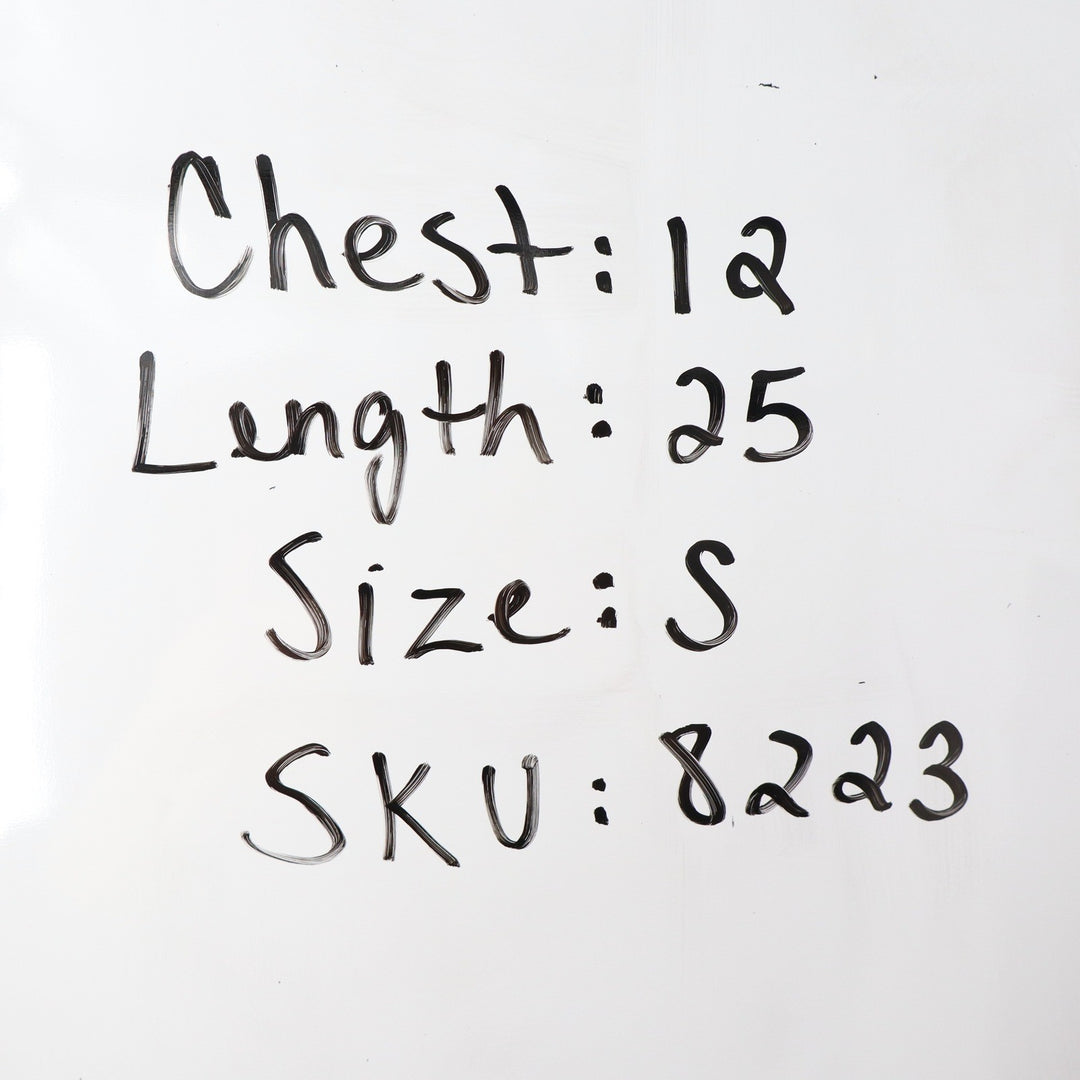 Chest: 12
Length: 25
Size: S
SKU: 8223